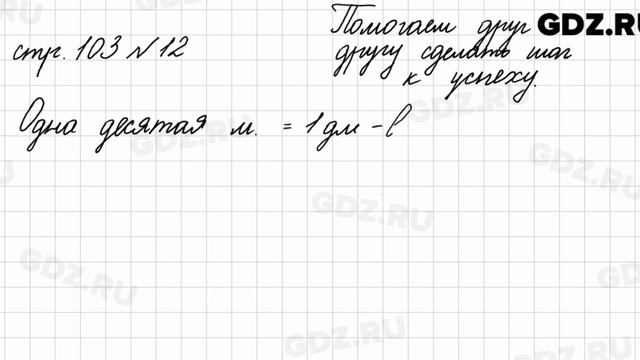 GDZ.RU
Помогаем друг
стр. 103 № 12
другу сделать шаг
к успеху.
Одна десятая м. = 1 дм - в
GDZ.RU
GDZ.RU
GDZ.RU
GDZ.RU
GDZ.RU
GDZ.RU
GDZ.RU
GDZ.RU